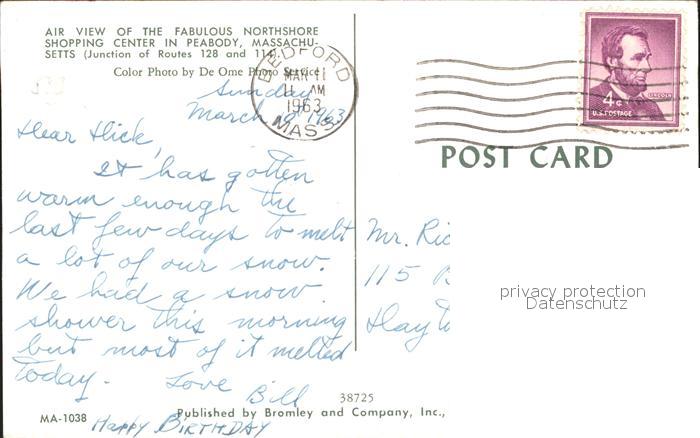 AIR VIEW OF THE FABULOUS NORTHSHORE
SHOPPING CENTER IN PEABODY, MASSACHU-
SETTS (Junction of Routes 128 and 114).
Color Photo by De Ome Photo Service
BEDFORD
MAR 11
11 AM
1963
MASS.
LINCOLN
4¢
U.S. POSTAGE
POST CARD
Sunday
March 1963
Dear Dick,
It has gotten
warm enough the
last few days to melt
a lot of our snow.
We had a snow
shower this morning
but most of it melted
today. Love
Bill
HAPPY BIRTHDAY
Mr. Ric
115
Dayto
privacy protection
Datenschutz
38725
MA-1038
Published by Bromley and Company, Inc.,